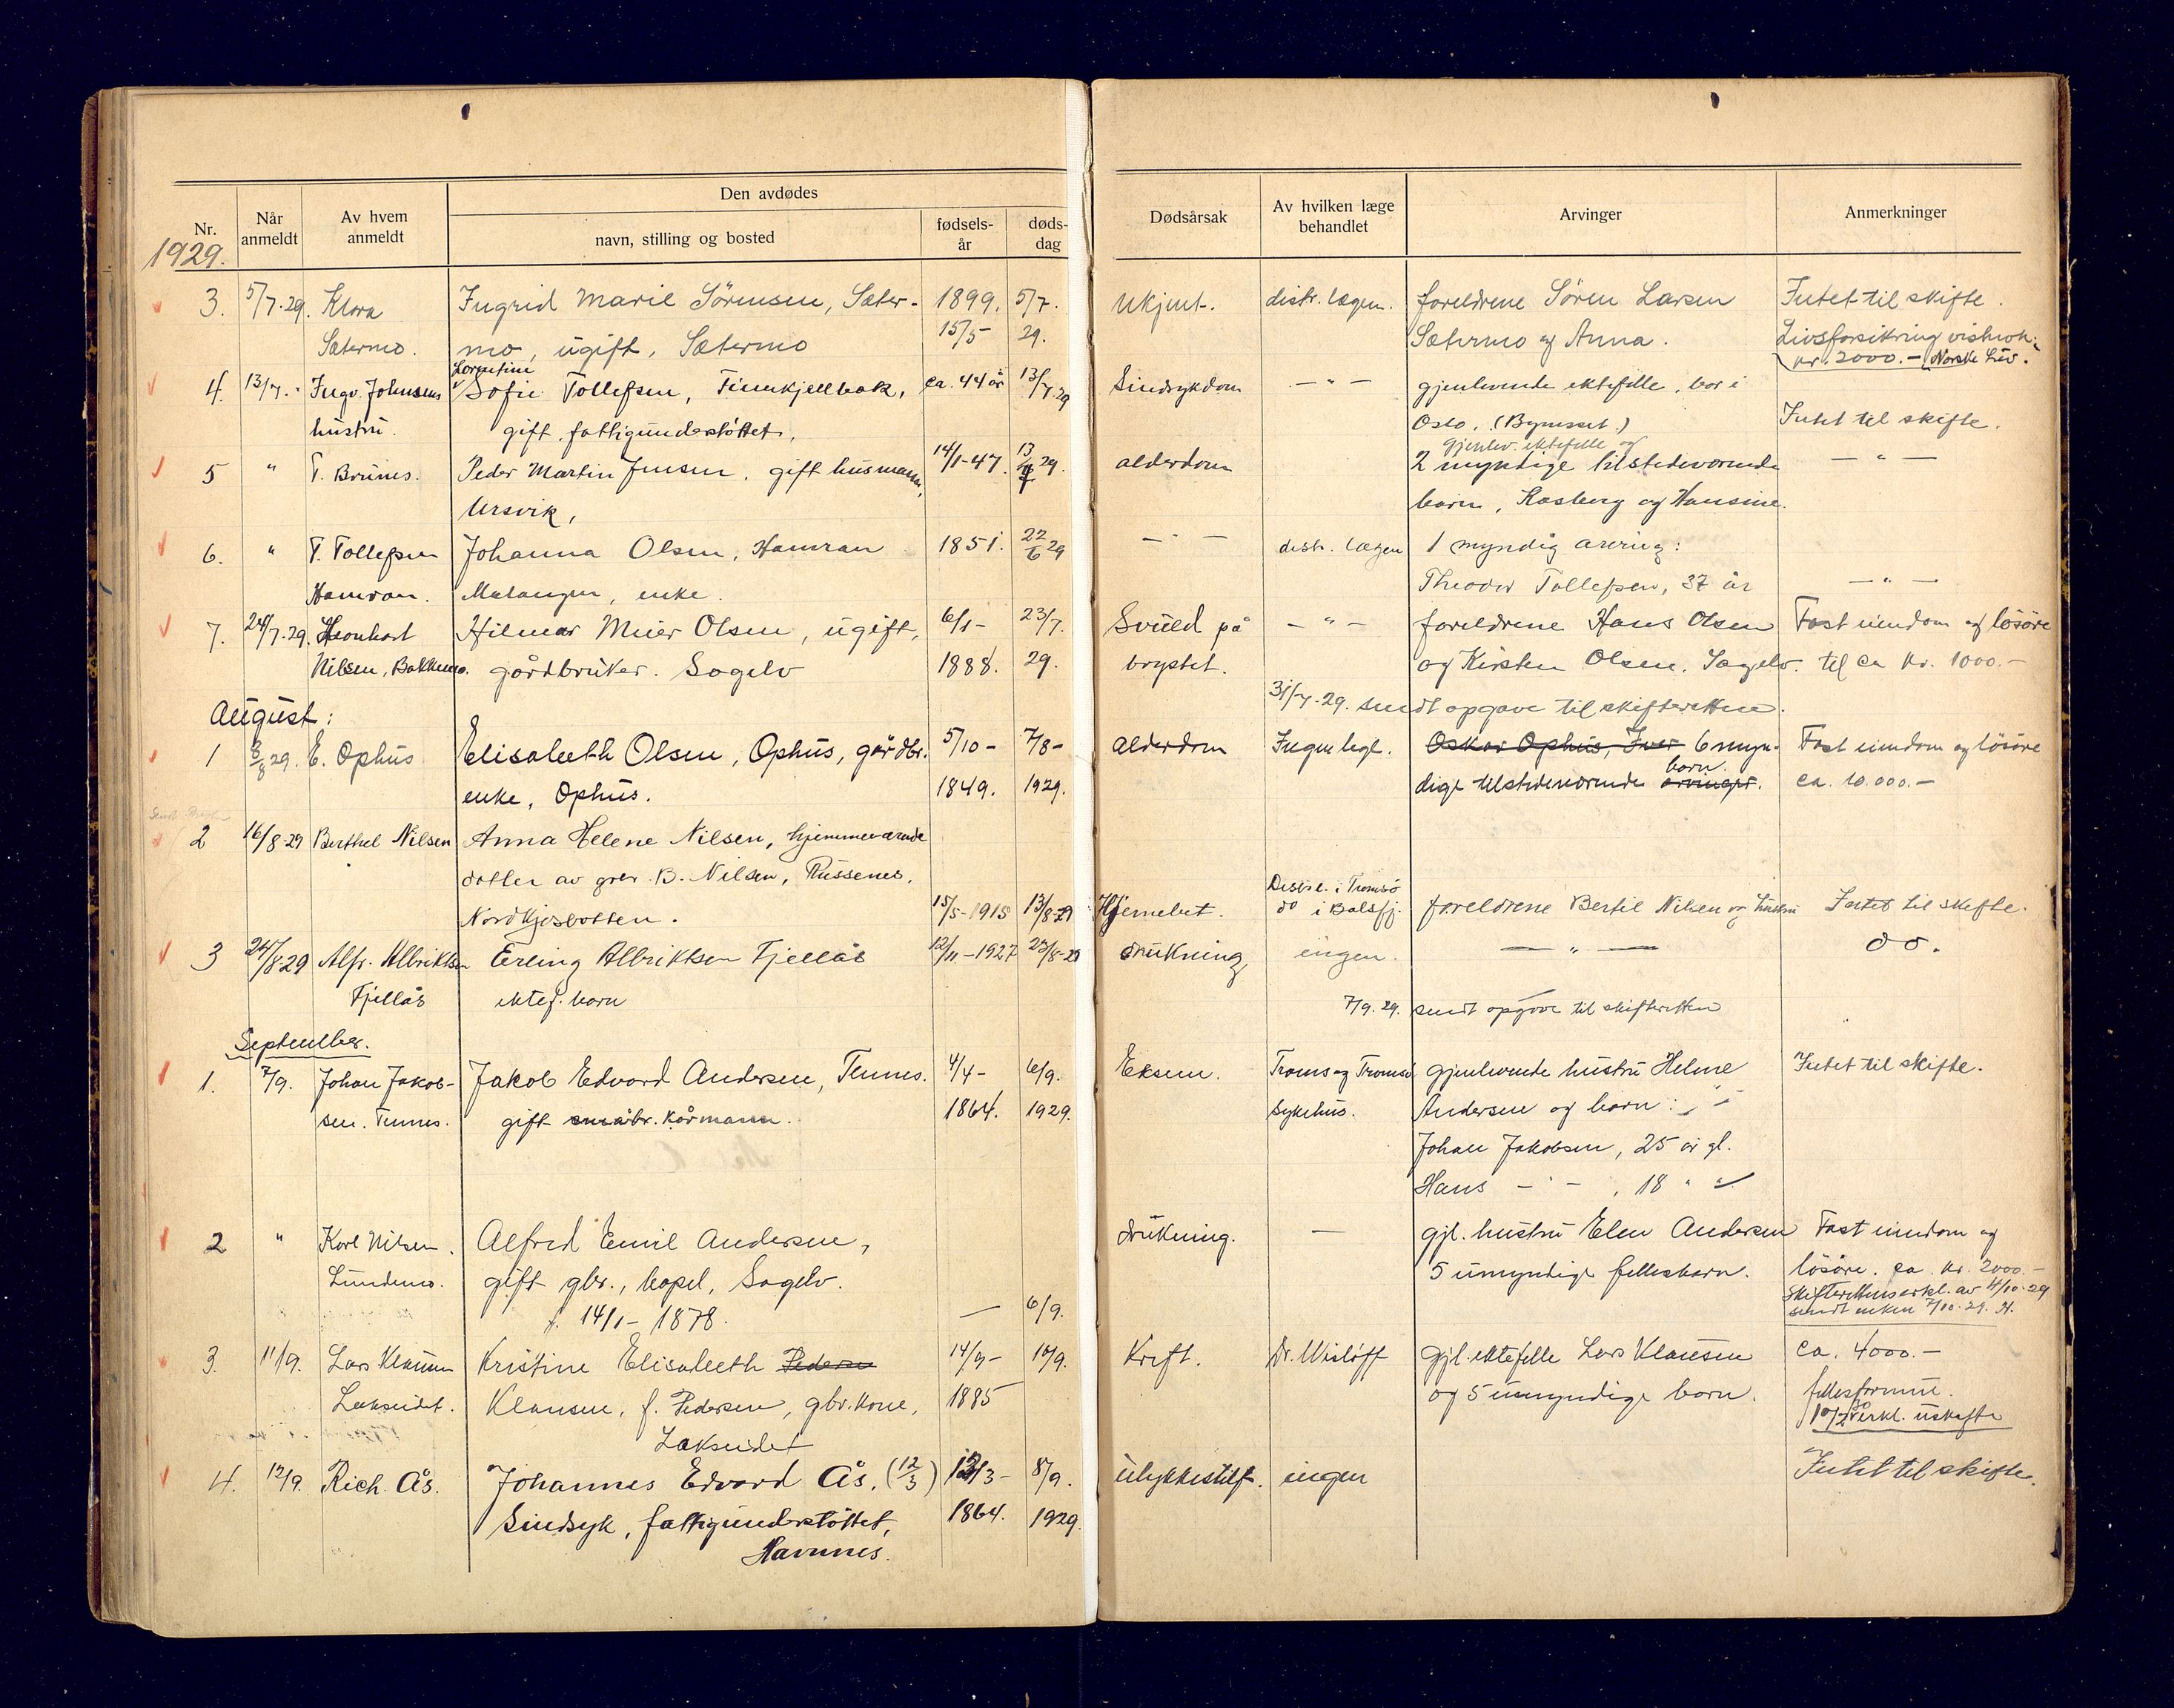 Den avdødes
Nr. Når anmeldt Av hvem anmeldt navn, stilling og bosted fødsels-år døds-dag Dødsårsak Av hvilken læge behandlet Arvinger Anmerkninger
1929.
3. 5/7.29. Klara Ingrid Marie Sörensen, Sæter- 1899. 5/7. Ukjent. distr.lægen. foreldrene Sören Larsen Intet til skifte.
Sætermo. mo, ugift, Sætermo 15/5 29. Sætermo og Anna. Livsforsikring
kr. 2000.- Norske Liv.
Lorentine
4. 13/7.- Ingv. Johnsens Sofie Tollefsen, Finnkjellbak, ca. 44 år 13/7.29 Sindsykdom — " — gjenlevende ektefelle, bor i
hustru. gift, fattigunderstöttet, Oslo. Intet til skifte.
gjenlev. ektefelle og
5 " T. Brunes. Peder Martin Jensen, gift husmann, 14/1-47. 13/7 29. alderdom 2 myndige tilstedeværende — " —
Ursvik, barn, Rasberg og Hansine.
6. " T. Tollefsen Johanna Olsen, Hamran 1851. 22/6 29 — " — distr. lægen 1 myndig arving:
Hamran. Malangen, enke. Theodor Tollefsen, 37 år — " —
7. 24/7.29. Leonhart Hilmar Meier Olsen, ugift, 6/1- 23/7. Svuld på — " — foreldrene Hans Olsen Fast eiendom og lösöre
Nilsen, Bakkemo. gårdbruker. Sagelv 1888. 29. brystet. og Kirsten Olsen. Sagelv. til ca kr. 1000.-
31/7.29. sendt opgave til skifteretten.
August:
1 8/8 29. E. Ophus Elisabeth Olsen, Ophus, gårdbr. 5/10- 7/8- Alderdom Ingen legl. Oskar Ophus, Iver 6 myn- Fast eiendom og lösöre
enke, Ophus. 1849. 1929. dige tilstedeværende arvinger. barn. ca. 10.000.-
2 16/8-29 Berthel Nilsen Anna Helene Nilsen, hjemmeværende
datter av gbr. B. Nilsen, Russenes,
Distr.l. i Tromsö
Nordkjosbotten. 15/5-1915 13/8-29 Hjernebet. do i Balsfj. foreldrene Bertil Nilsen og hustru Intet til skifte.
3 24/8-29 Alfr. Albriktsen Erling Albriktsen Fjellås 12/11-1927 23/8-29 drukning ingen. — " — do.
Fjellås ektef. barn
7/9.29. sendt opgave til skifteretten
September.
1. 7/9. Johan Jakob- Jakob Edvard Andersen, Tennes. 4/4- 6/9. Eksem. Troms og Tromsö gjenlevende hustru Helene Intet til skifte.
sen. Tennes. gift småbr. kårmann. 1864. 1929. Sykehus. Andersen og barn:
Johan Jakobsen, 25 år gl.
Hans — " — , 18 " "
2 " Karl Nilsen. Alfred Emil Andersen, drukning. — gjl. hustru Elen Andersen Fast eiendom og
Lundemo. gift gbr., bopel, Sagelv. 5 umyndige fellesbarn. lösöre. ca. kr. 2000.-
f. 14/1-1878. — 6/9. Skifterettens erkl. av 4/10-29
sendt enken 7/10-29.
3. 11/9. Lars Klausen Kristine Elisabeth Pedersen 14/9- 10/9. Kreft. Dr. Wislöff gjl. ektefelle Lars Klausen ca. 4000.-
Lakseidet. Klausen, f. Pedersen, gbr.kone, 1885 og 5 umyndige barn. fellesformue.
Lakseidet erkl. uskifte
4. 12/9. Rich. Ås. Johannes Edvard Ås. (12/3) 12/3- 8/9. ulykkestilf. ingen Intet til skifte.
Sindsyk, fattigunderstöttet, 1864. 1929.
Havnnes.